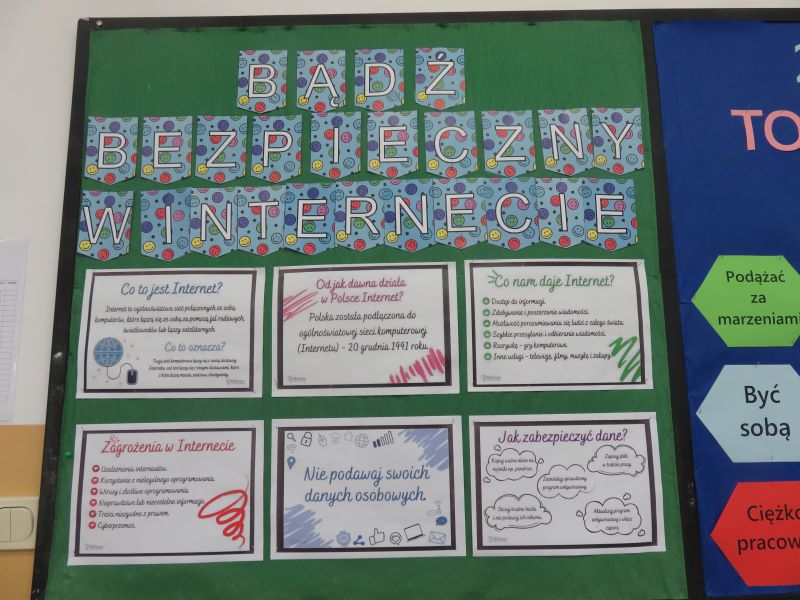 BĄDŹ
BEZPIECZNY
W INTERNECIE
Co to jest Internet?
Internet to ogólnoświatowa sieć połączonych ze sobą
komputerów, które łączą się ze sobą za pomocą fal radiowych,
światłowodów lub łączy satelitarnych.
Co to oznacza?
Twoja sieć komputerowa łączy się z siecią dostawcy
Internetu, zaś ten łączy się z innymi dostawcami, które
z kolei łączą miasta, państwa i kontynenty.
Od jak dawna działa
w Polsce Internet?
Polska została podłączona do
ogólnoświatowej sieci komputerowej
(Internetu) - 20 grudnia 1991 roku.
Co nam daje Internet?
Dostęp do informacji.
Zdobywanie i poszerzanie wiadomości.
Możliwość porozumiewania się ludzi z całego świata.
Szybkie przesyłanie i odbieranie wiadomości.
Rozrywkę - gry komputerowe.
Inne usługi - telewizję, filmy, muzykę i zakupy.
Zagrożenia w Internecie
Uzależnienia internautów.
Korzystanie z nielegalnego oprogramowania.
Wirusy i złośliwe oprogramowania.
Nieprawdziwe lub nierzetelne informacje.
Treści niezgodne z prawem.
Cyberprzemoc.
Nie podawaj swoich
danych osobowych.
Jak zabezpieczyć dane?
Kopiuj ważne dane na
nośniki np. pendrive.
Zapisuj pliki
w trakcie pracy.
Zainstaluj sprawdzony
program antywirusowy.
Stosuj trudne hasła
i nie podawaj ich nikomu.
Aktualizuj program
antywirusowy i włącz
zaporę.
TO
Podążać
za
marzeniami
Być
sobą
Ciężko
pracow